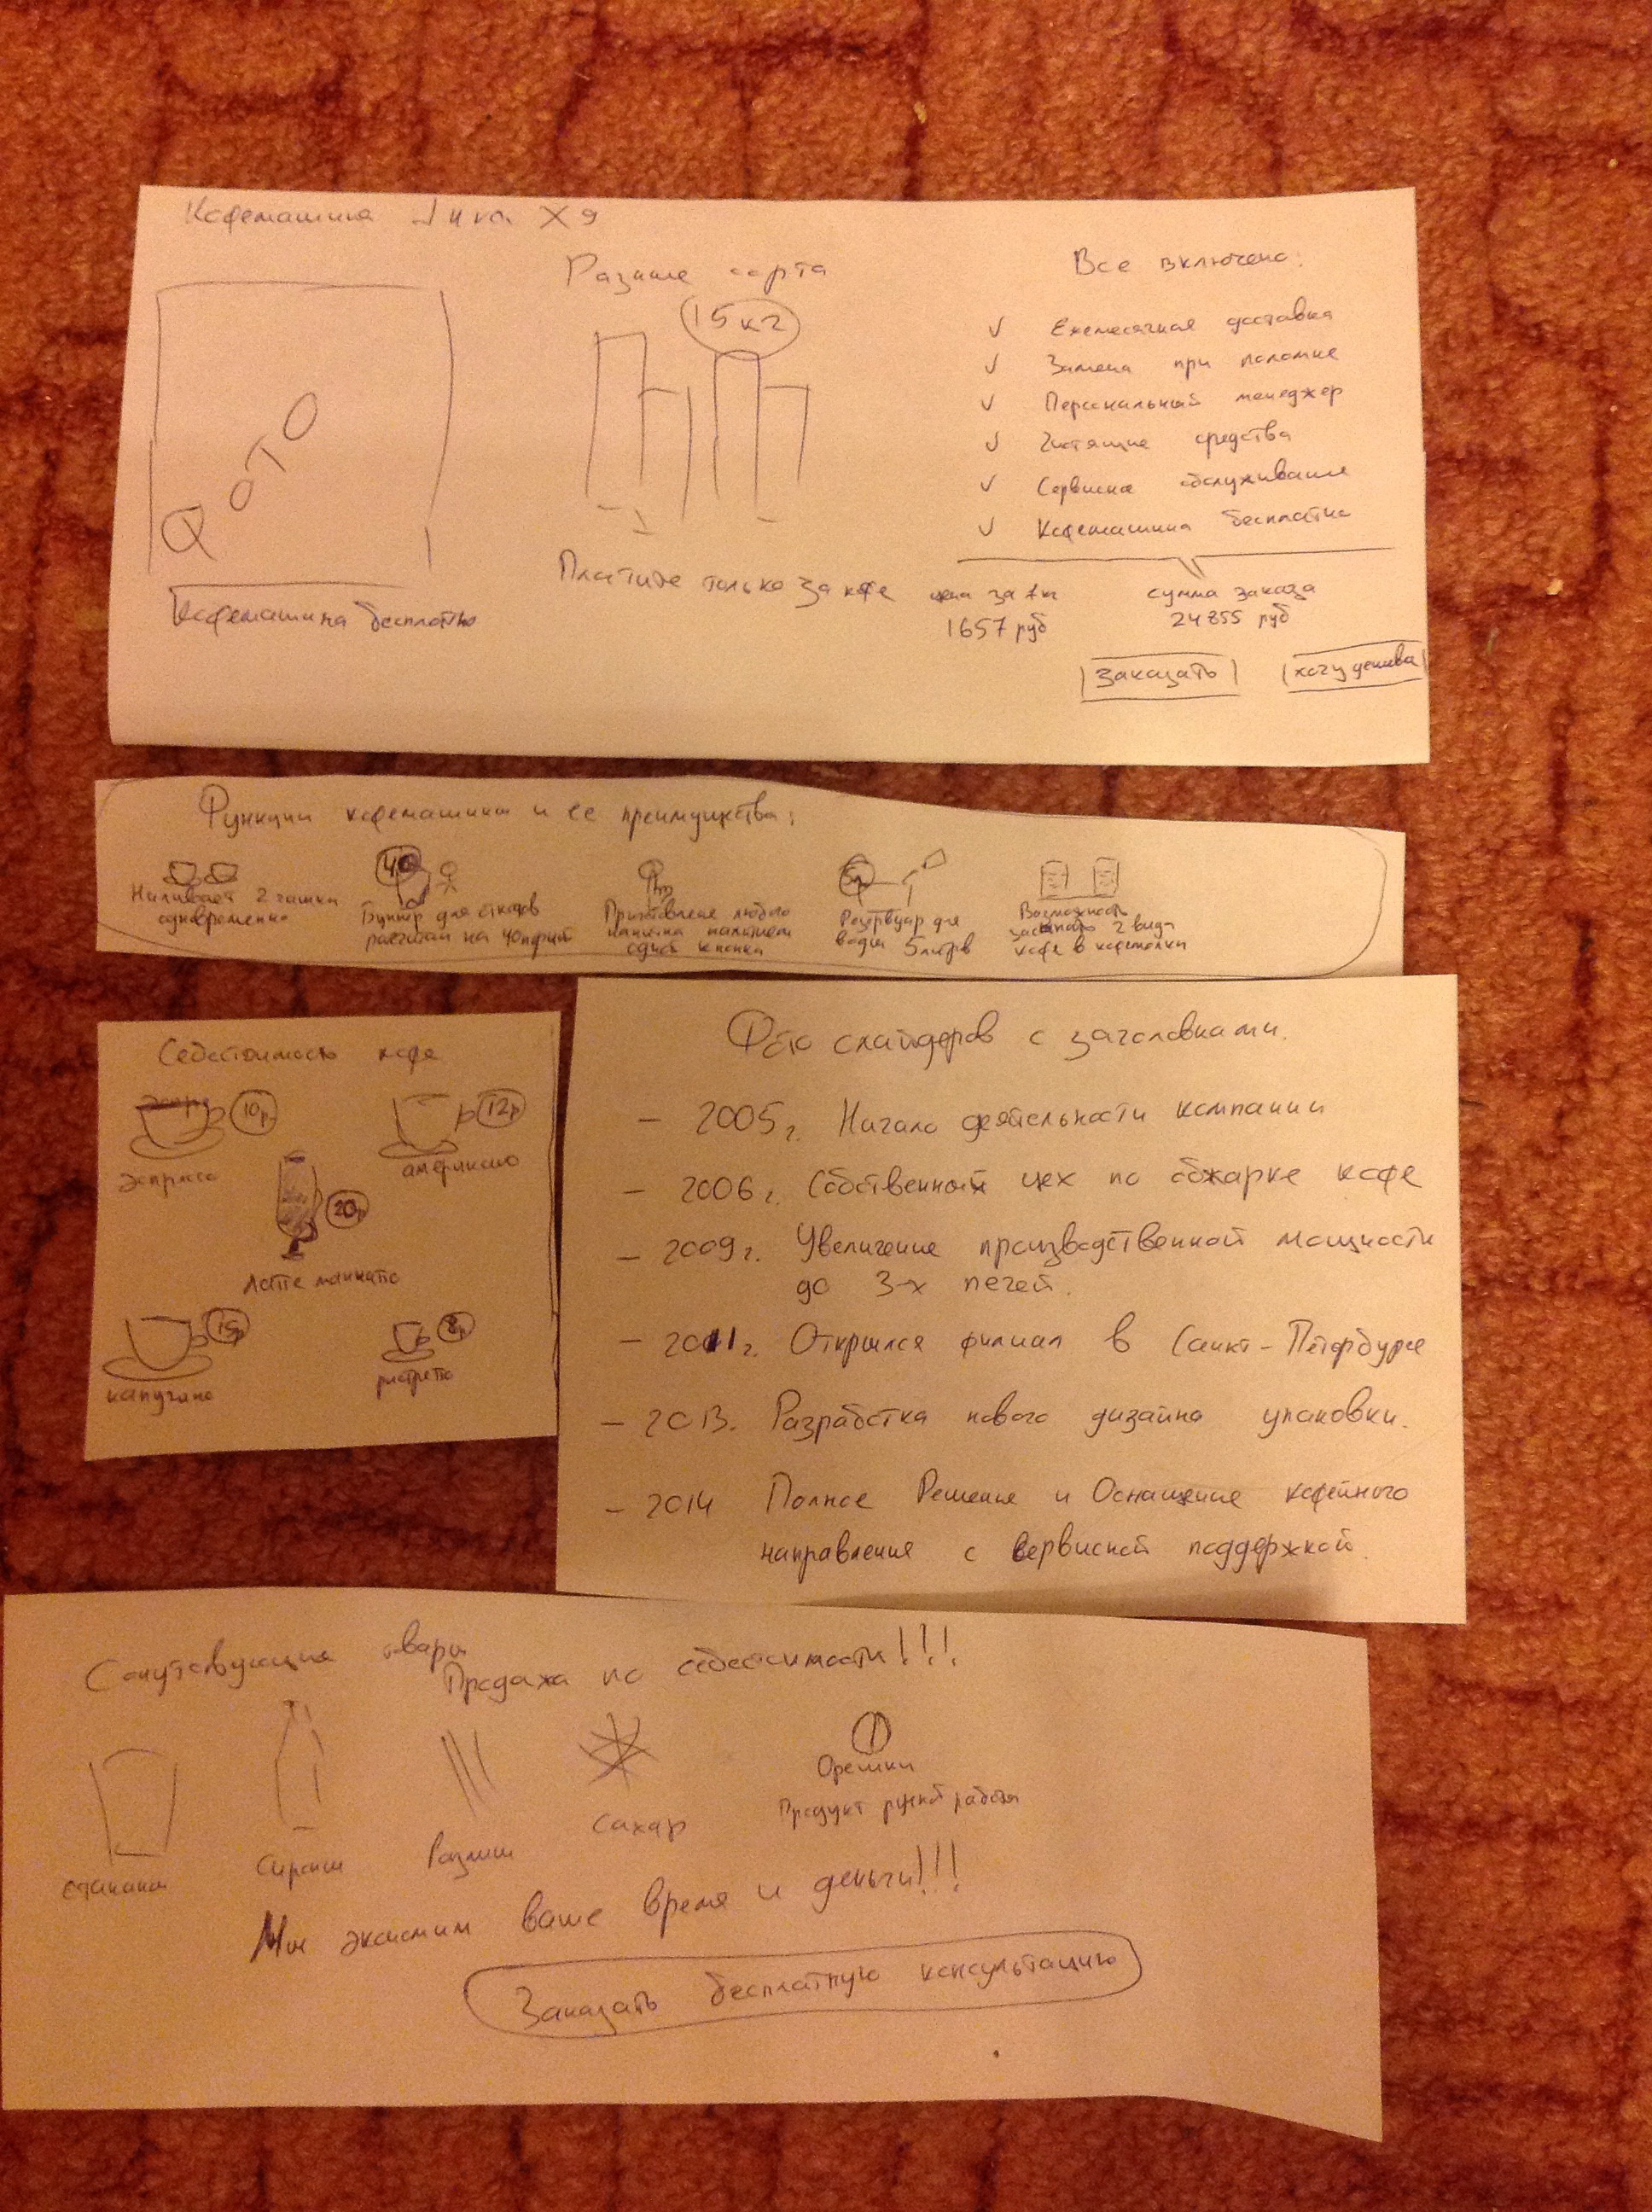 Кофемашина Jura X9
Разные сорта
15 кг
Все включено:
√ Ежемесячная доставка
√ Замена при поломке
√ Персональный менеджер
√ Чистящие средства
√ Сервисное обслуживание
√ Кофемашина бесплатно
ФОТО
Кофемашина бесплатно
Платите только за кофе
цена за 1 кг
1657 руб
сумма заказа
24855 руб
Заказать
хочу дешева
Функции кофемашины и ее преимущества:
Наливает 2 чашки
одновременно
40
Бункер для отходов
расчитан на 40 порций
Приготовление любого
напитка нажатием
одной кнопки
5л
Резервуар для
воды 5 литров
Возможность
засыпать 2 вида
кофе в кофемолки
Себестоимость кофе
10р
эспрессо
12р
американо
20р
Латте макиато
15р
капучино
8р
ристретто
Фото слайдеров с заголовками.
– 2005г. Начало деятельности компании
– 2006г. Собственный цех по обжарке кофе
– 2009г. Увеличение производственной мощности
до 3-х печей.
– 2011г. Открылся филиал в Санкт-Петербурге
– 2013. Разработка нового дизайна упаковки.
– 2014 Полное Решение и Оснащение кофейного
направления с сервисной поддержкой.
Сопутсвующие товары
Продажа по себестоимости!!!
стаканы
Сиропы
Размеш
Сахар
Орешки
Продукт ручной работы
Мы экономим ваше время и деньги!!!
Заказать бесплатную консультацию